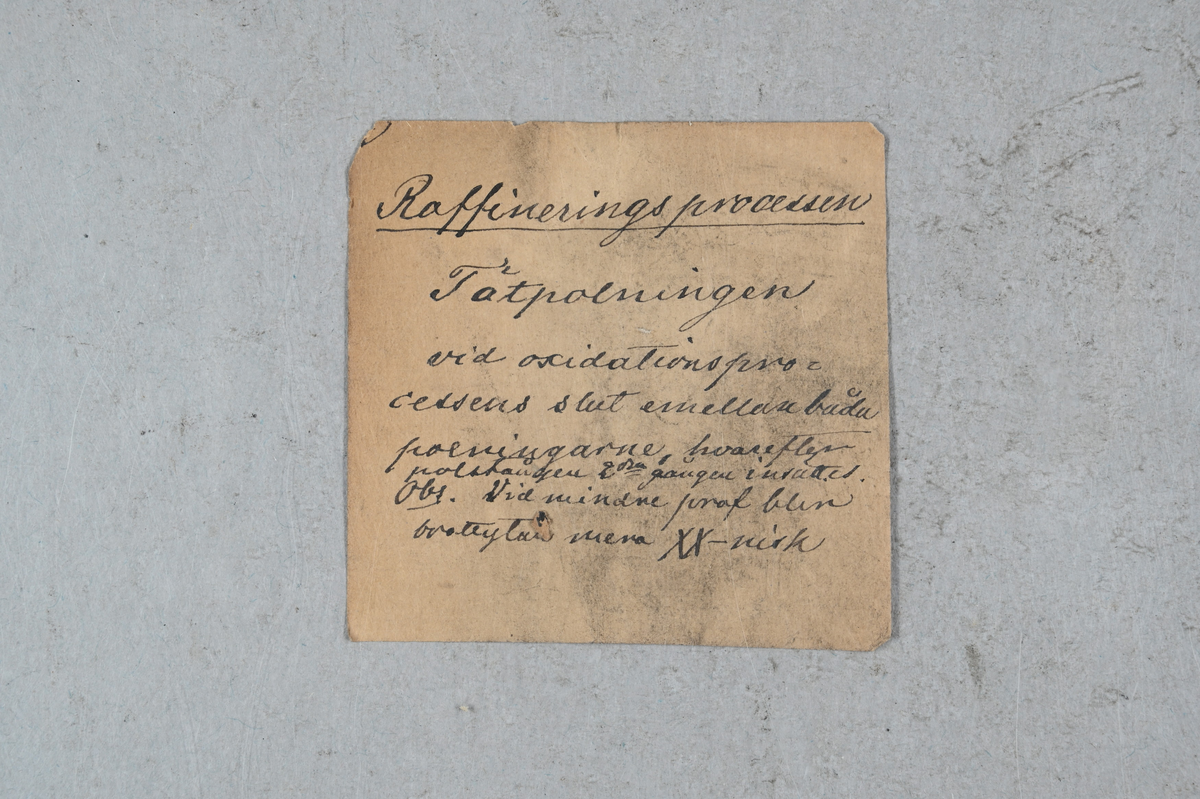 Raffineringsprocessen
Tätpolningen
vid oxidationspro=
cessens slut emellan båda
polningarne, hvarefter
polstången 2dra gången insättes.
Obs. Vid mindre prof blir
brottytan mera XX-nisk